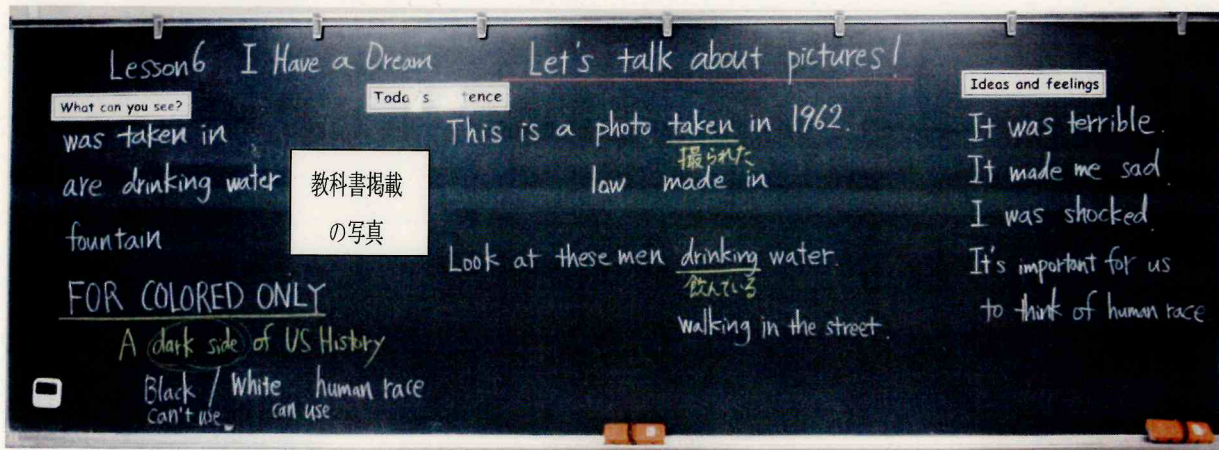 Lesson6 I Have a Dream
Let's talk about pictures!
What can you see?
was taken in
are drinking water
fountain
FOR COLORED ONLY
A dark side of US History
Black / White human race
can't use can use
教科書掲載
の写真
This is a photo taken in 1962.
撮られた
law made in
Look at these men drinking water.
飲んでいる
walking in the street.
Ideas and feelings
It was terrible.
It made me sad.
I was shocked.
It's important for us
to think of human race